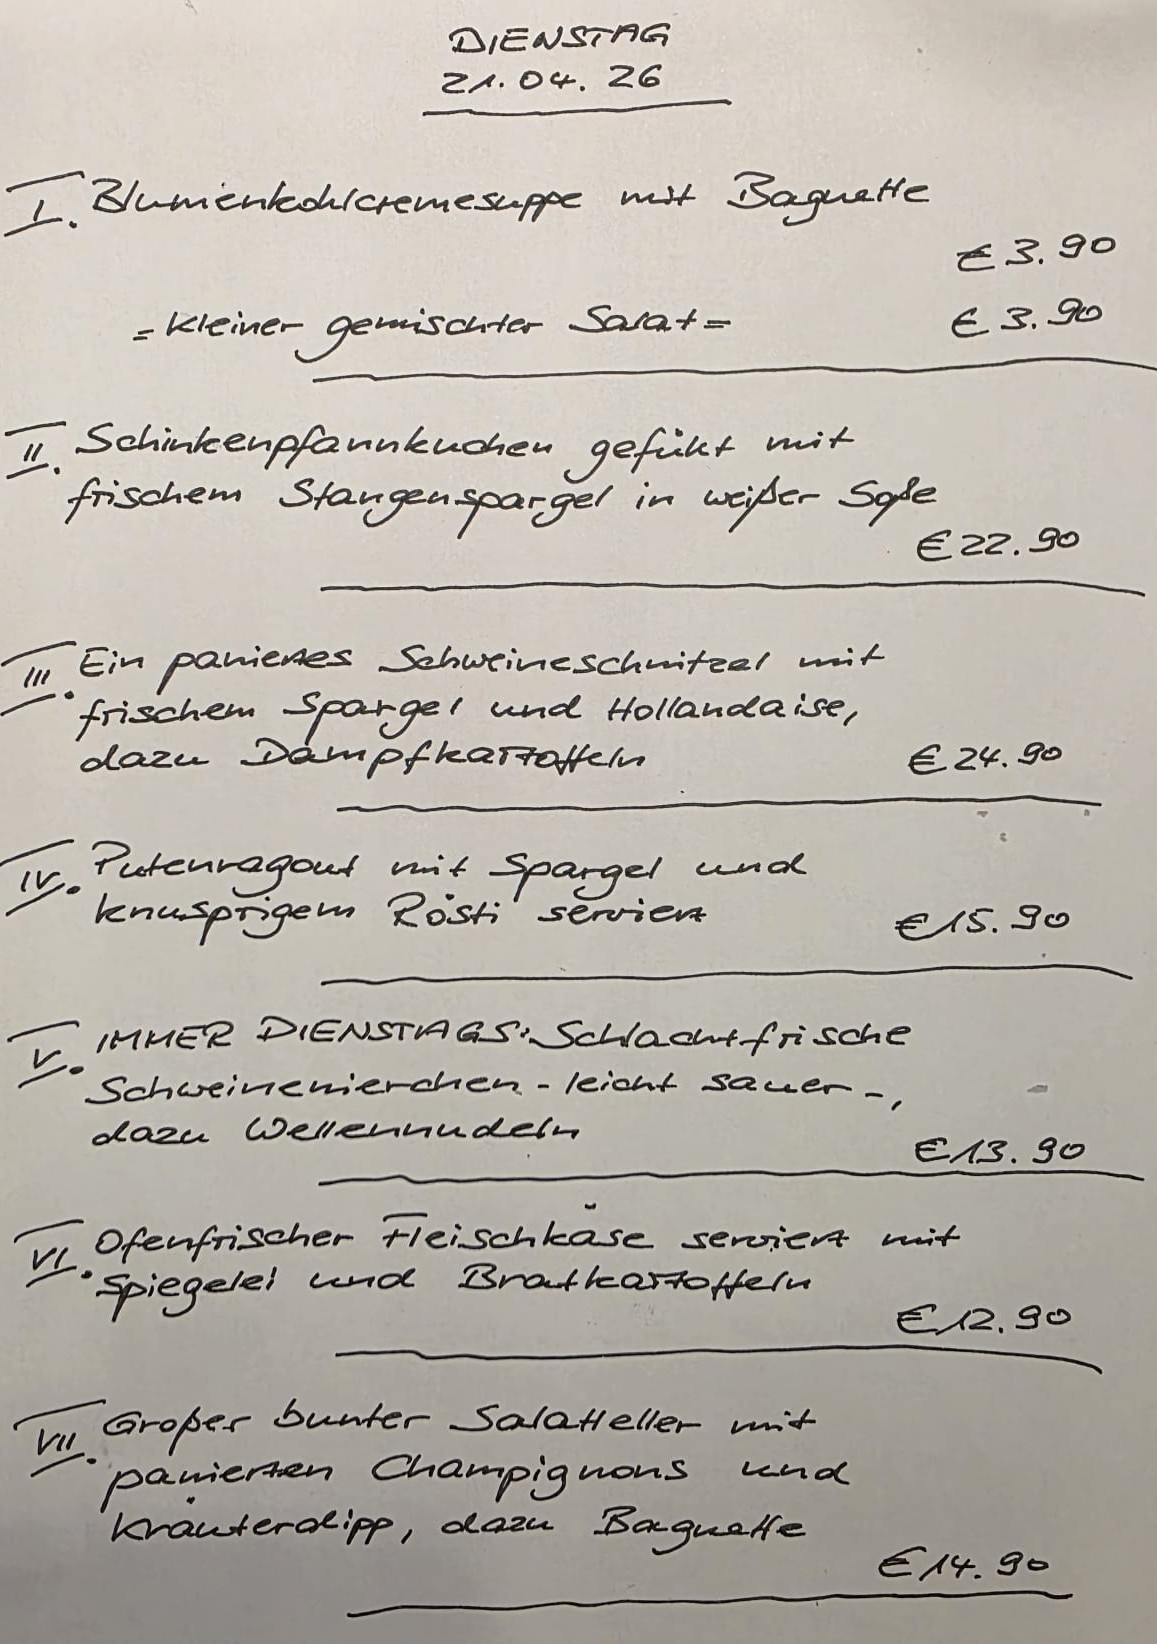 DIENSTAG
21.04.26
I. Blumenkohlcremesuppe mit Baguette
€ 3.90
= Kleiner gemischter Salat = € 3.90
II. Schinkenpfannkuchen gefüllt mit
frischem Stangenspargel in weißer Soße
€ 22.90
III. Ein paniertes Schweineschnitzel mit
frischem Spargel und Hollandaise,
dazu Dampfkartoffeln € 24.90
IV. Putenragout mit Spargel und
knusprigem Rösti serviert € 15.90
V. IMMER DIENSTAGS: Schlachtfrische
Schweinenierchen - leicht sauer -,
dazu Wellennudeln
€ 13.90
VI. Ofenfrischer Fleischkäse serviert mit
Spiegelei und Bratkartoffeln
€ 12.90
VII. Großer bunter Salatteller mit
panierten Champignons und
Kräuterdipp, dazu Baguette
€ 14.90